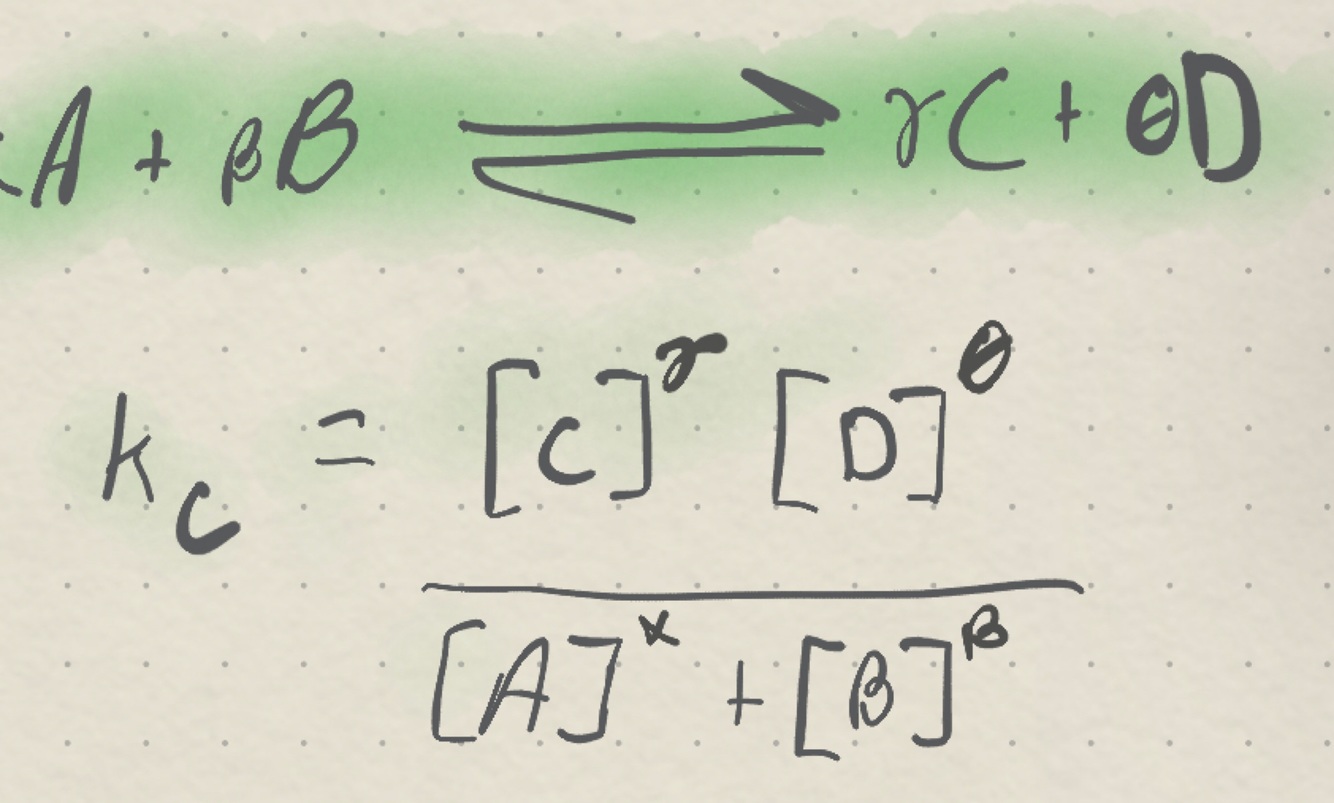 αA + βB ⇌ γC + θD
k_c = [C]^γ [D]^θ
[A]^α + [B]^β